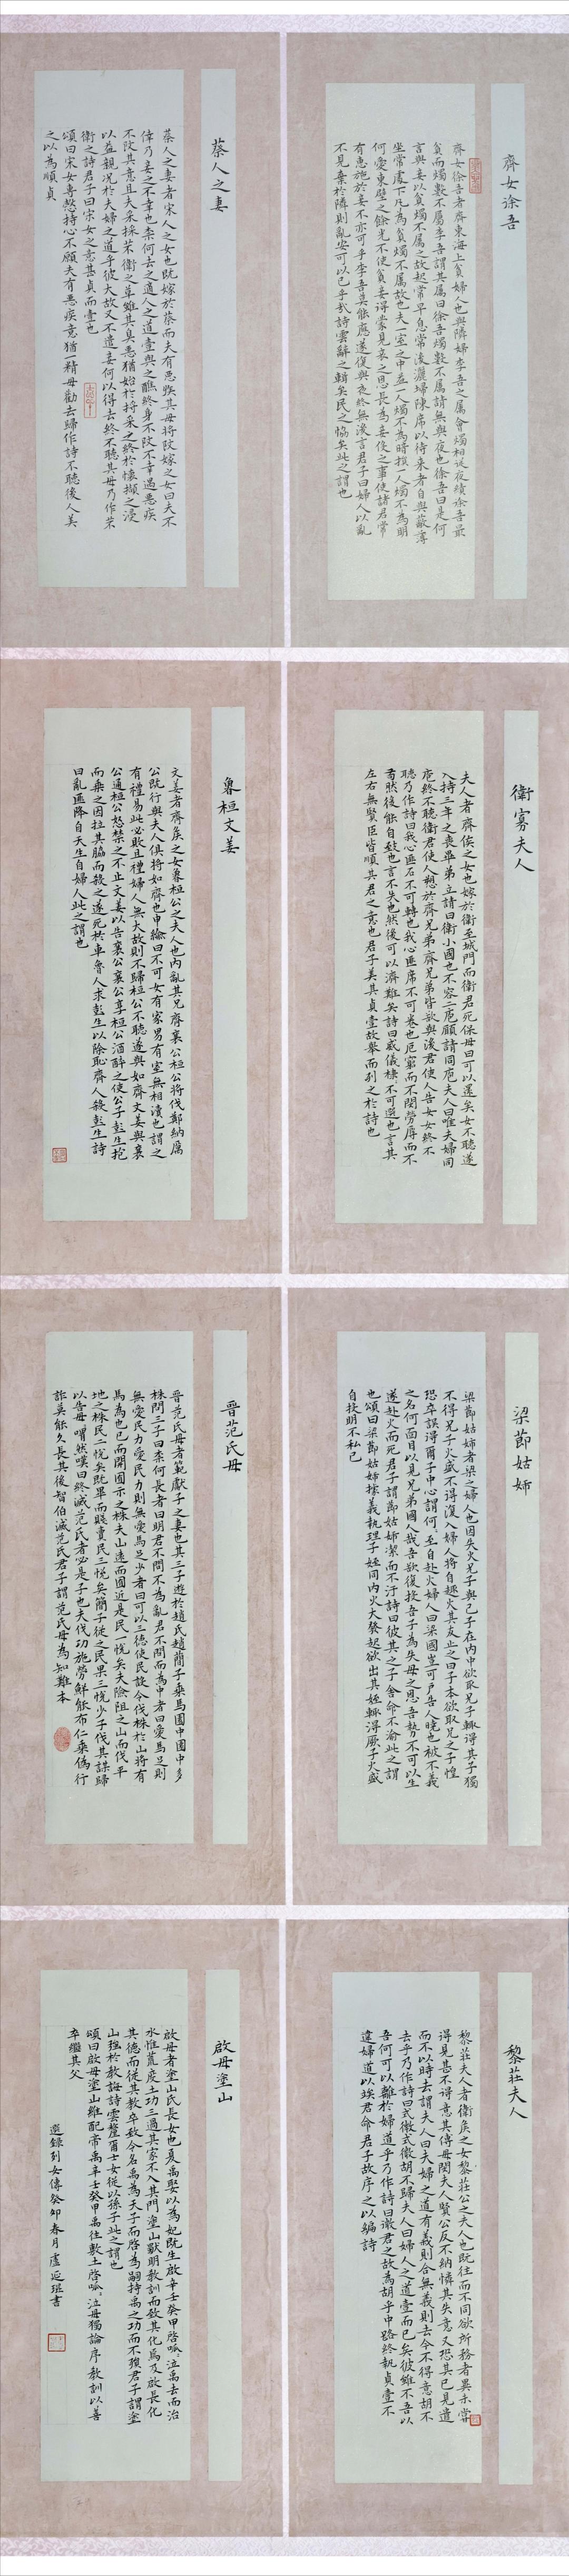 齊女徐吾
齊女徐吾者齊東海上貧婦人也與隣婦李吾之属會燭相從夜績徐吾最
貧而燭數不属李吾謂其属曰徐吾燭數不属請無與夜也徐吾曰是何
言與妾以貧燭不属之故起常早息常後灑埽陳席以待來者自與蔽薄
坐常處下凡為貧燭不属故也夫一室之中益一人燭不為暗損一人燭不為明
何愛東壁之餘光不使貧妾得蒙見哀之恩長為妾役之事使諸君常
有惠施於妾不亦可乎李吾莫能應遂復與夜終無後言君子曰婦人以辭
不見棄於隣則辭安可以已乎哉詩雲辭之輯矣民之協矣此之謂也
蔡人之妻
蔡人之妻者宋人之女也既嫁於蔡而夫有惡疾其母將改嫁之女曰夫不
倖乃妾之不幸也柰何去之適人之道壹與之醮終身不改不幸遇惡疾
不改其意且夫采採芣衛之草雖其臭惡猶始於捋采之終於懷擷之浸
以益親况於夫婦之道乎彼大故又不遣妾何以得去終不聽其母乃作芣
衛之詩君子曰宋女之意甚貞而壹也
頌曰宋女專愨持心不願夫有惡疾意猶一精母勸去歸作詩不聽後人美
之以為順貞
衛寡夫人
夫人者齊侯之女也嫁於衛至城門而衛君死保母曰可以還矣女不聽遂
入持三年之喪畢弟立請曰衛小國也不容二庖願請同庖夫人曰唯夫婦同
庖終不聽衛君使人愬於齊兄弟齊兄弟皆欲與後君使人告女女終不
聽乃作詩曰我心匪石不可轉也我心匪席不可卷也厄窮而不閔勞辱而不
苟然後能自致也言不失也然後可以濟難矣詩曰威儀棣不可選也言其
左右無賢臣皆順其君之意也君子美其貞壹故舉而列之於詩也
魯桓文姜
文姜者齊侯之女魯桓公之夫人也內亂其兄齊襄公桓公將伐鄭納厲
公既行與夫人俱將如齊也申繻曰不可女有家男有室無相瀆也謂之
有禮易此必敗且禮婦人無大故則不歸桓公不聽遂與如齊文姜與襄
公通桓公怒禁之不止文姜以告襄公襄公享桓公酒醉之使公子彭生抱
而乘之因拉其脇而殺之遂死於車魯人求彭生以除恥齊人殺彭生詩
曰亂匪降自天生自婦人此之謂也
梁節姑姊
梁節姑姊者梁之婦人也因失火兄子與己子在內中欲取兄子輒得其子獨
不得兄子火盛不得復入婦人將自趣火其友止之曰子本欲取兄之子惶
恐卒誤得爾子中心謂何至自赴火婦人曰梁國豈可戶告人曉也被不義
之名何面目以見兄弟國人哉吾欲復投吾子為失母之恩吾勢不可以生
遂赴火而死君子謂節姑姊潔而不汙詩曰彼其之子舍命不渝此之謂
也頌曰梁節姑姊據義執理子姪同內火大發起欲出其姪輒得厥子火盛
自投明不私己
晋范氏母
晋范氏母者範獻子之妻也其三子遊於趙氏趙簡子乘馬園中園中多
株問三子曰柰何長者曰明君不問不為亂君不問而為中者曰愛馬足則
無愛民力愛民力則無愛馬足少者曰可以三德使民設令伐株於山將有
馬為也已而開囿示之株夫山遠而囿近是民一悅矣夫險阻之山而伐平
地之株民二悅矣既畢而賤賣民三悅矣簡子從之民果三悅少子伐其謀歸
以告母喟然嘆曰終滅范氏者必是子也夫伐功施勞鮮能布仁乘偽行
詐莫能久長其後智伯滅范氏君子謂范氏母為知難本
黎莊夫人
黎莊夫人者衛侯之女黎莊公之夫人也既往而不同欲所務者異未嘗
得見甚不得意其傅母閔夫人賢公反不納憐其失意又恐其已見遣
而不以時去謂夫人曰夫婦之道有義則合無義則去今不得意胡不
去乎乃作詩曰式微式微胡不歸夫人曰婦人之道壹而已矣彼雖不吾以
吾何可以離於婦道乎乃作詩曰微君之故為胡乎中路終執貞壹不
違婦道以竢君命君子故序之以編詩
啟母塗山
啟母者塗山氏長女也夏禹娶以為妃既生啟辛壬癸甲啓呱泣禹去而治
水惟荒度土功三過其家不入其門塗山獨明教訓而致其化焉及啟長化
其德而從其教卒致令名禹為天子而啓為嗣持禹之功而不殞君子謂塗
山强於教誨詩雲釐爾士女從以孫子此之謂也
頌曰啟母塗山維配帝禹辛壬癸甲禹往敷土啓呱泣母獨論序教訓以善
卒繼其父
選錄列女傳癸卯春月盧延琨書